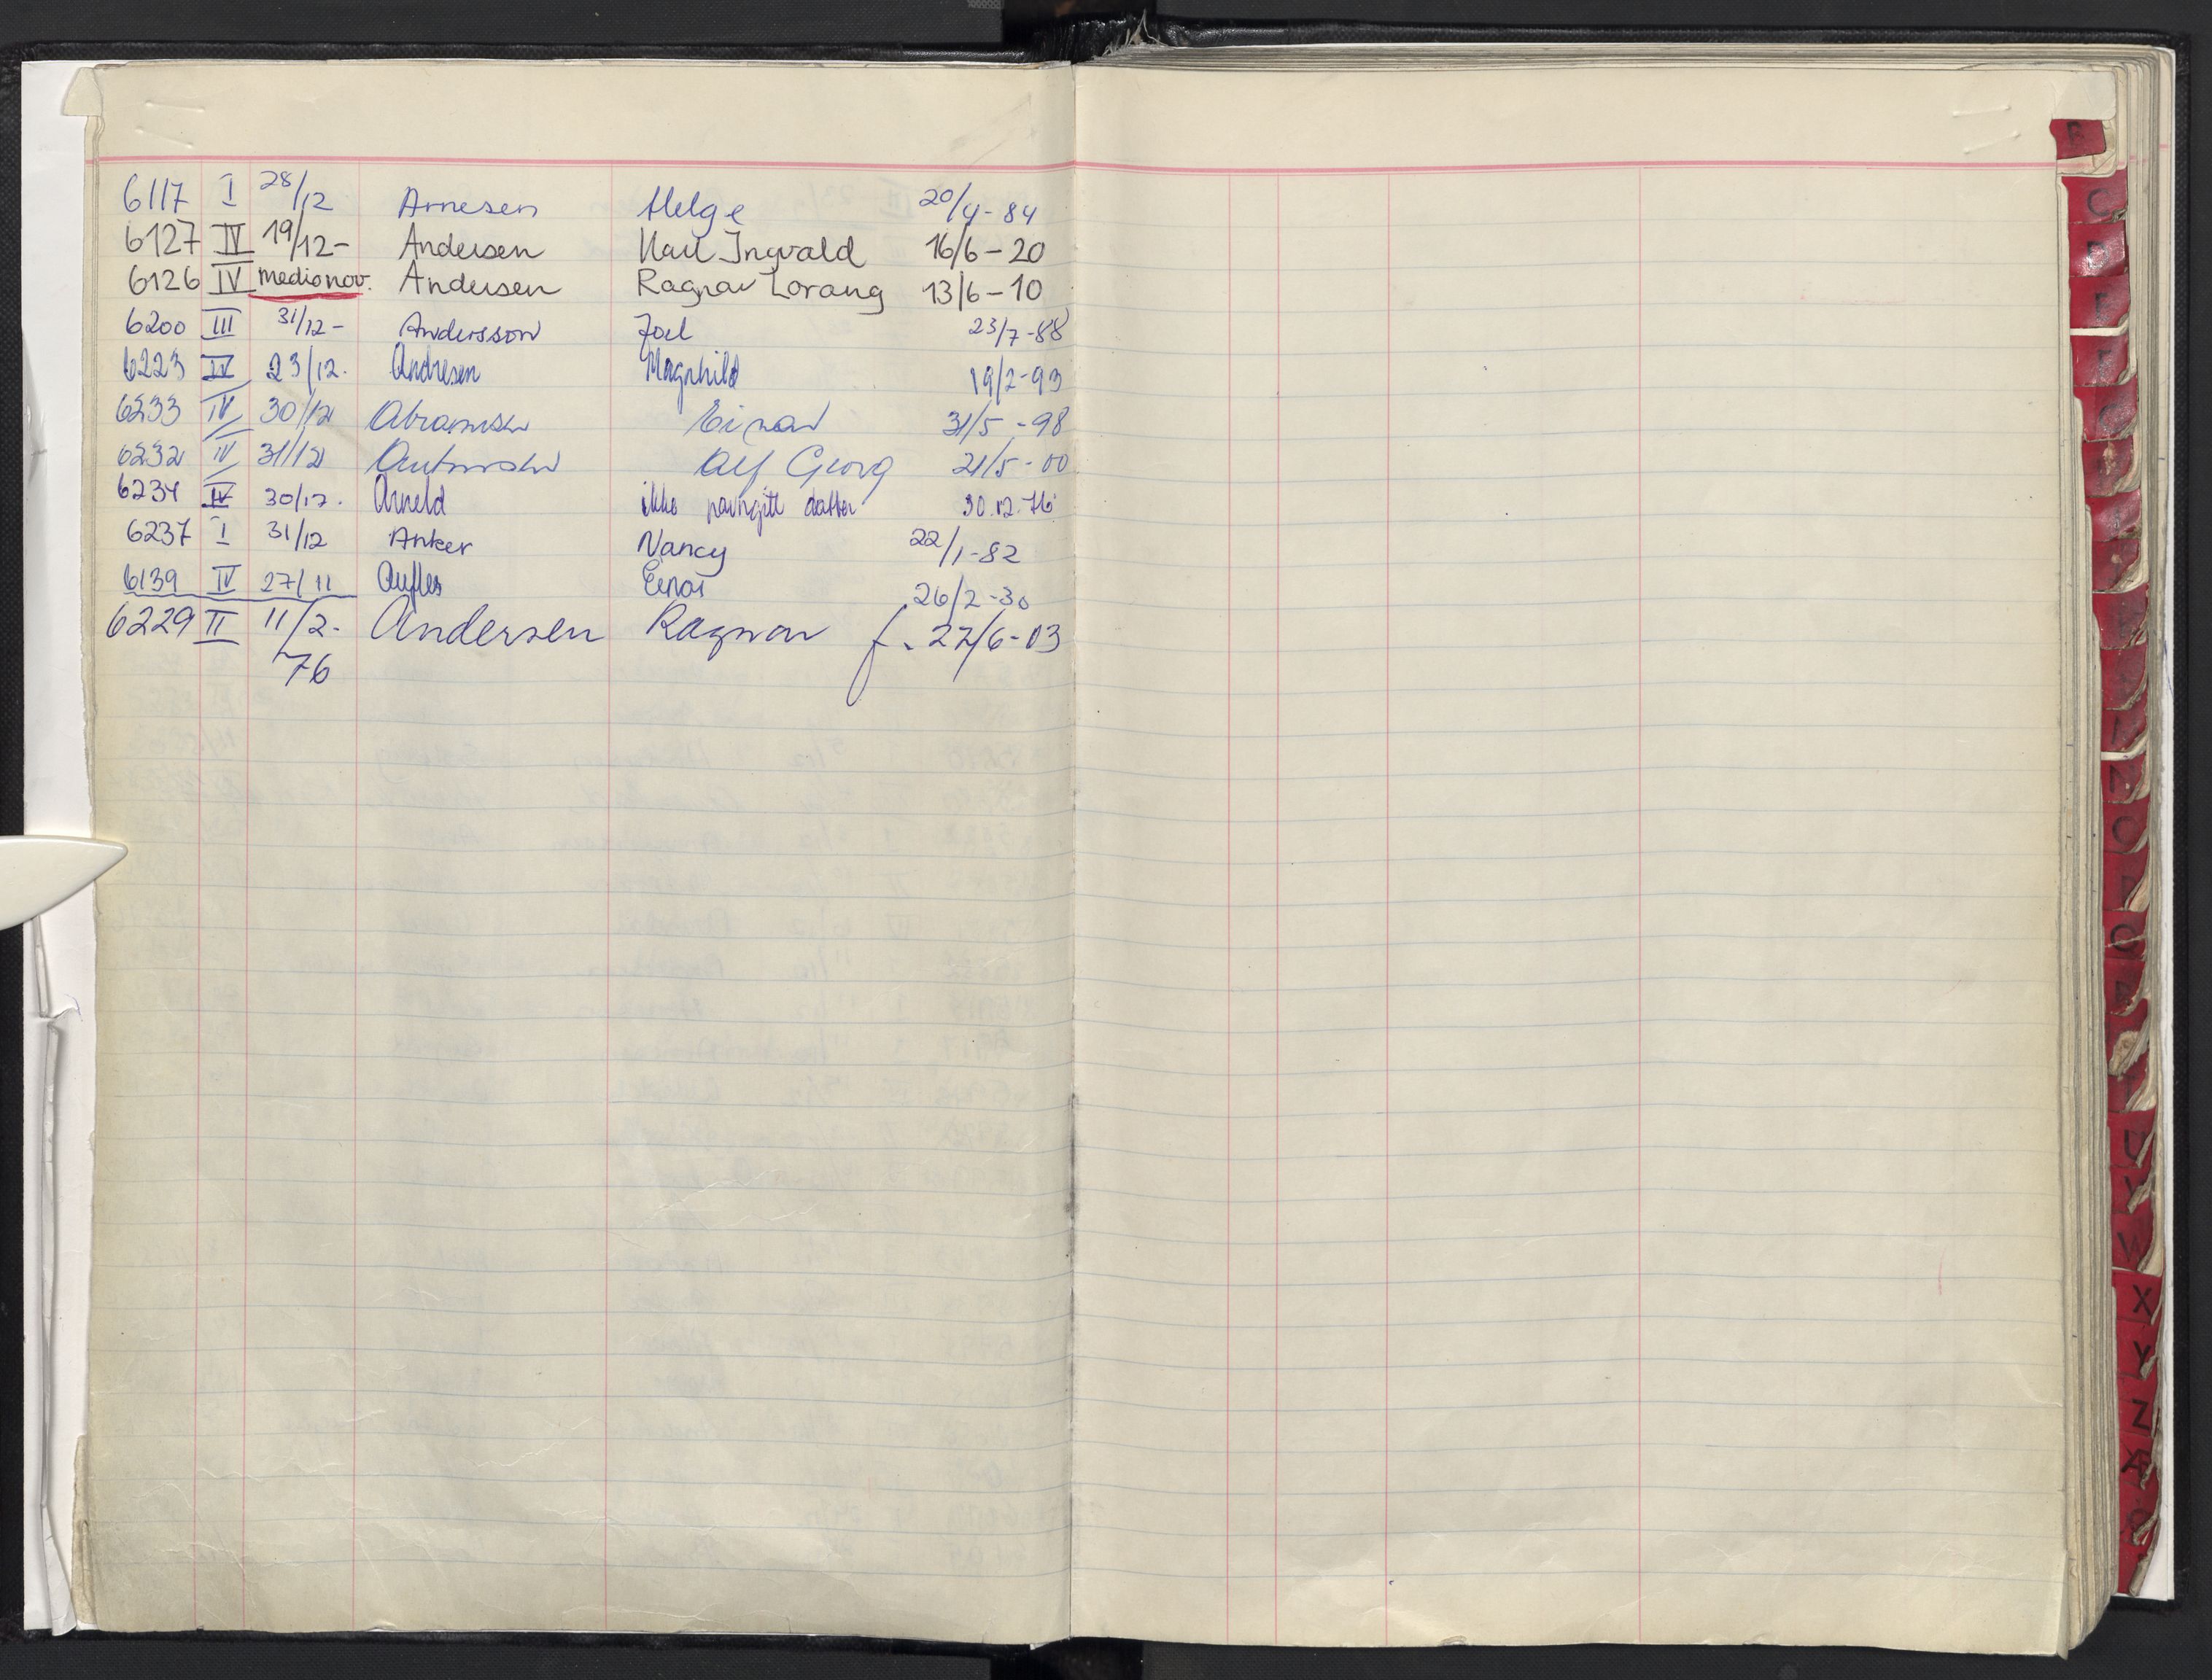 6117 I 28/12 Arnesen Helge 20/4-84
6127 IV 19/12- Andersen Karl Ingvald 16/6-20
6126 IV medio nov. Andersen Ragnar Lorang 13/6-10
6200 III 31/12- Andersson Joel 23/7-88
6223 IV 23/12. Andresen Magnhild 19/2-93
6233 IV 30/12 Abramsen Einar 31/5-98
6232 IV 31/12 Alf Georg 21/5-00
6234 IV 30/12. Arneld ikke navngitt datter 30.12.76
6237 I 31/12 Anker Nancy 22/1-82
6139 IV 27/11 Aufles Einar 26/2-30
6229 II 11/2- Andersen Ragnar f. 22/6-03
76
C
O
Q
U
V
W
X
Y
Z
Æ